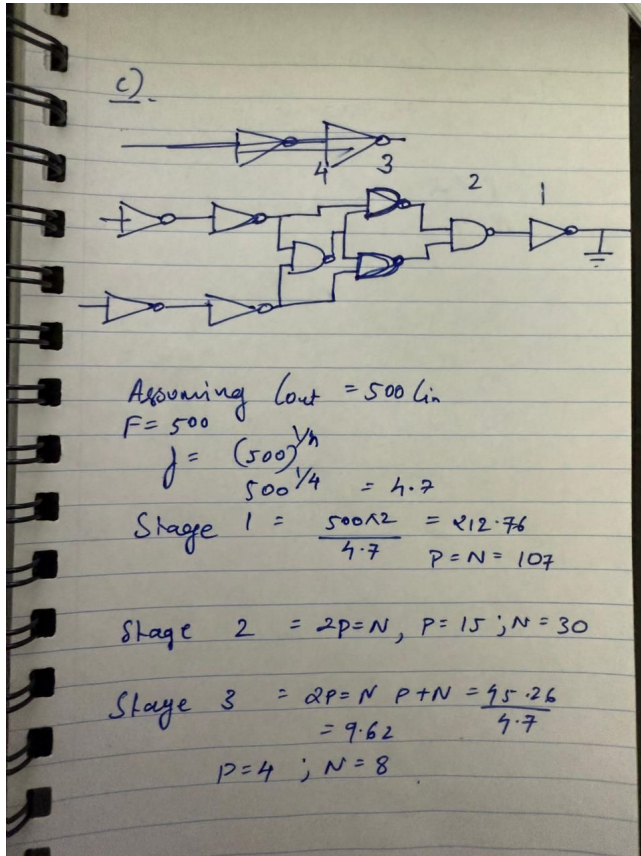 c).
4 3
2
1
Assuming Cout = 500 Cin
F = 500
f = (500)^1/n
500^1/4 = 4.7
Stage 1 = 500×2 / 4.7 = 212.76
P = N = 107
Stage 2 = 2P=N, P=15 ; N=30
Stage 3 = 2P=N P+N = 45.26 / 4.7
= 9.62
P=4 ; N=8